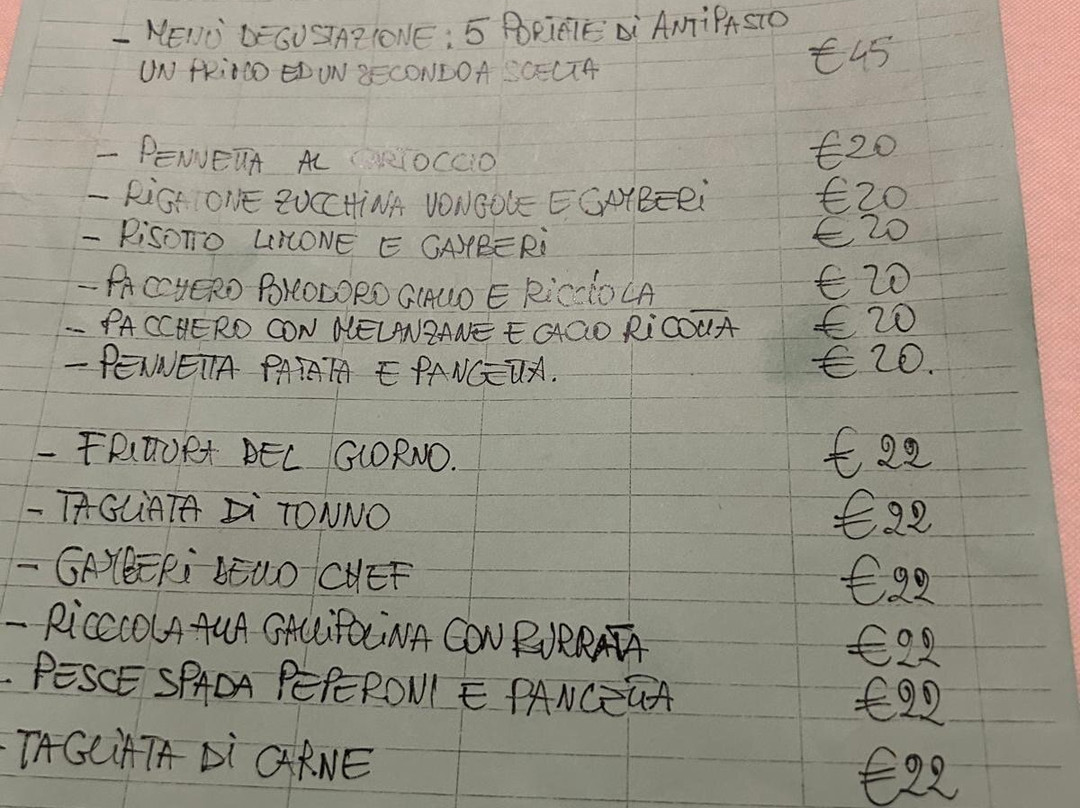 - MENÙ DEGUSTAZIONE: 5 PORTATE Di ANTIPASTO
UN PRIMO ED UN SECONDO A SCELTA €45
- PENNETTA AL CARTOCCIO €20
- RIGATONE ZUCCHINA VONGOLE E GAMBERI €20
- RISOTTO LIMONE E GAMBERI €20
- PACCHERO POMODORO GIALLO E RICCIOLA €20
- PACCHERO CON MELANZANE E CACIO RICOTTA €20
- PENNETTA PATATA E PANCETTA. €20.
- FRITTURA DEL GIORNO. €22
- TAGLIATA Di TONNO €22
- GAMBERI DELLO CHEF €22
- RICCIOLA ALLA GALLIPOLINA CON BURRATA €22
- PESCE SPADA PEPERONI E PANCETTA €22
- TAGLIATA Di CARNE €22